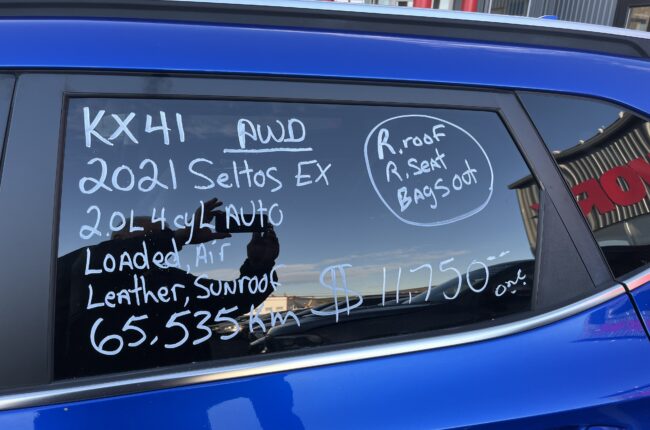 KX41 AWD
2021 Seltos EX
2.0L 4 cyL AUTO
Loaded, Air
Leather, Sunroof
65,535 km
$11,750.--
o.n.o.
R. roof
R. SeAt
BAgS out